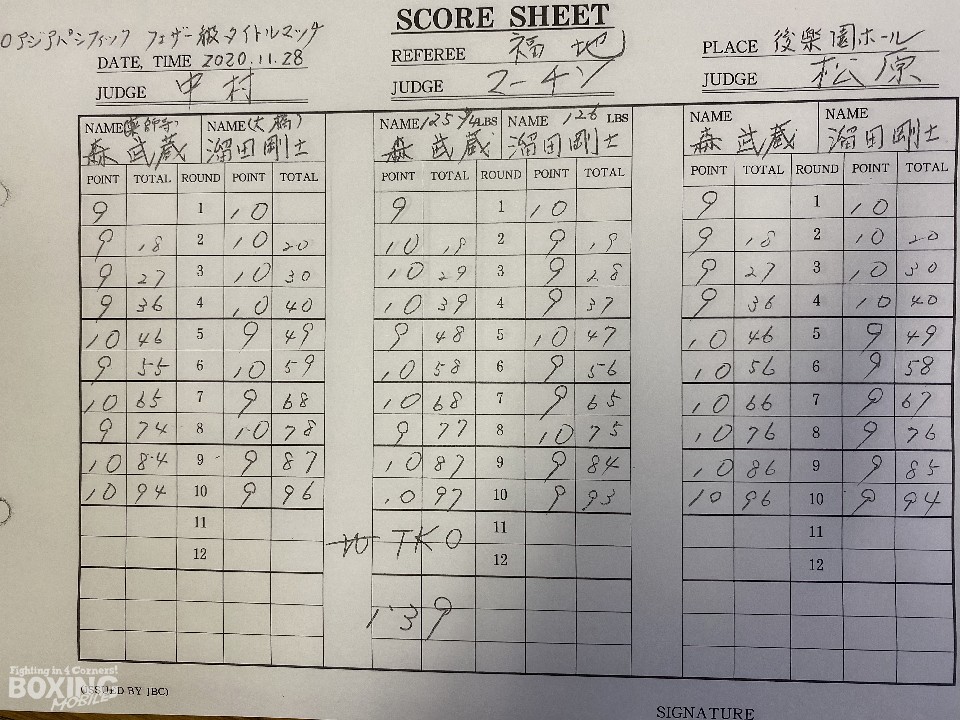 SCORE SHEET
Oアジアパシフィック フェザー級タイトルマッチ
DATE, TIME 2020.11.28
REFEREE 福地
PLACE 後樂園ホール
JUDGE 中村
JUDGE マーチン
JUDGE 松原
NAME(薬師寺) NAME(大橋) NAME 125 3/4 LBS NAME 126 LBS NAME NAME
森 武蔵 溜田剛士 森 武蔵 溜田剛士 森 武蔵 溜田剛士
POINT TOTAL ROUND POINT TOTAL POINT TOTAL ROUND POINT TOTAL POINT TOTAL ROUND POINT TOTAL
9 1 10 9 1 10 9 1 10
9 18 2 10 20 10 19 2 9 19 9 18 2 10 20
9 27 3 10 30 10 29 3 9 28 9 27 3 10 30
9 36 4 10 40 10 39 4 9 37 9 36 4 10 40
10 46 5 9 49 9 48 5 10 47 10 46 5 9 49
9 55 6 10 59 10 58 6 9 56 10 56 6 9 58
10 65 7 9 68 10 68 7 9 65 10 66 7 9 67
9 74 8 10 78 9 77 8 10 75 10 76 8 9 76
10 84 9 9 87 10 87 9 9 84 10 86 9 9 85
10 94 10 9 96 10 97 10 9 93 10 96 10 9 94
11 TKO 11 11
12 12 12
1'39
Fighting in 4 Corners!
BOXING
MOBILE
(ISSUED BY JBC)
SIGNATURE